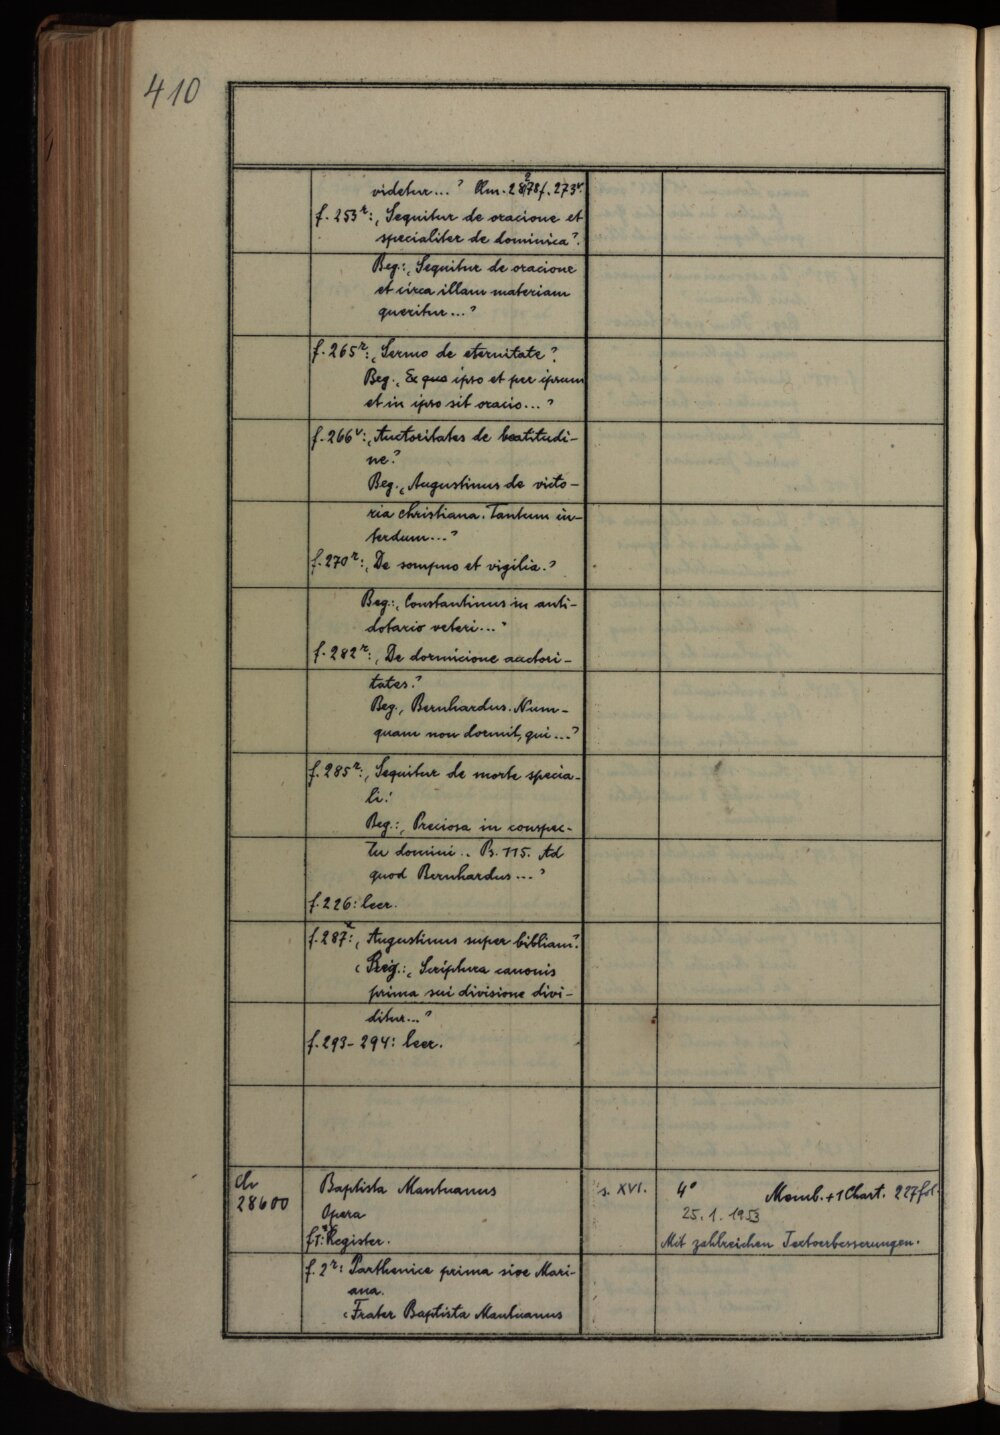 410
videtur...? Clm. 28278 f. 273v.
f. 253r: „Sequitur de oracione et
specialiter de dominica".
Beg.: „Sequitur de oracione
et circa illam materiam
queritur..."
f. 265r: „Sermo de eternitate".
Beg. „Ex quo ipso et per ipsum
et in ipso sit oracio..."
f. 266v: „Auctoritates de beatitudi-
ne".
Beg. „Augustinus de victo-
ria christiana. Tantum in-
terdum..."
f. 270r: „De sompno et vigilia."
Beg.: „Constantinus in anti-
dotario veteri..."
f. 282r: „De dormicione auctori-
tates."
Beg. „Bernhardus. Num-
quam non dormit, qui..."
f. 285r: „Sequitur de morte specia-
li."
Beg.: „Preciosa in conspec-
tu domini.. Ps. 115. Ad
quod Bernhardus..."
f. 226: leer.
f. 287r: „Augustinus super bibliam".
Beg.: „Scriptura canonis
prima sui divisione divi-
ditur..."
f. 293-294: leer.
Clm
28600
Baptista Mantuanus
Opera
s. XVI.
4°
Memb. + 1 Chart. 227 fol.
25. 1. 1953
f. 1r: Register.
Mit zahlreichen Textverbesserungen.
f. 2r: Parthenice prima sive Mari-
ana.
„Frater Baptista Mantuanus